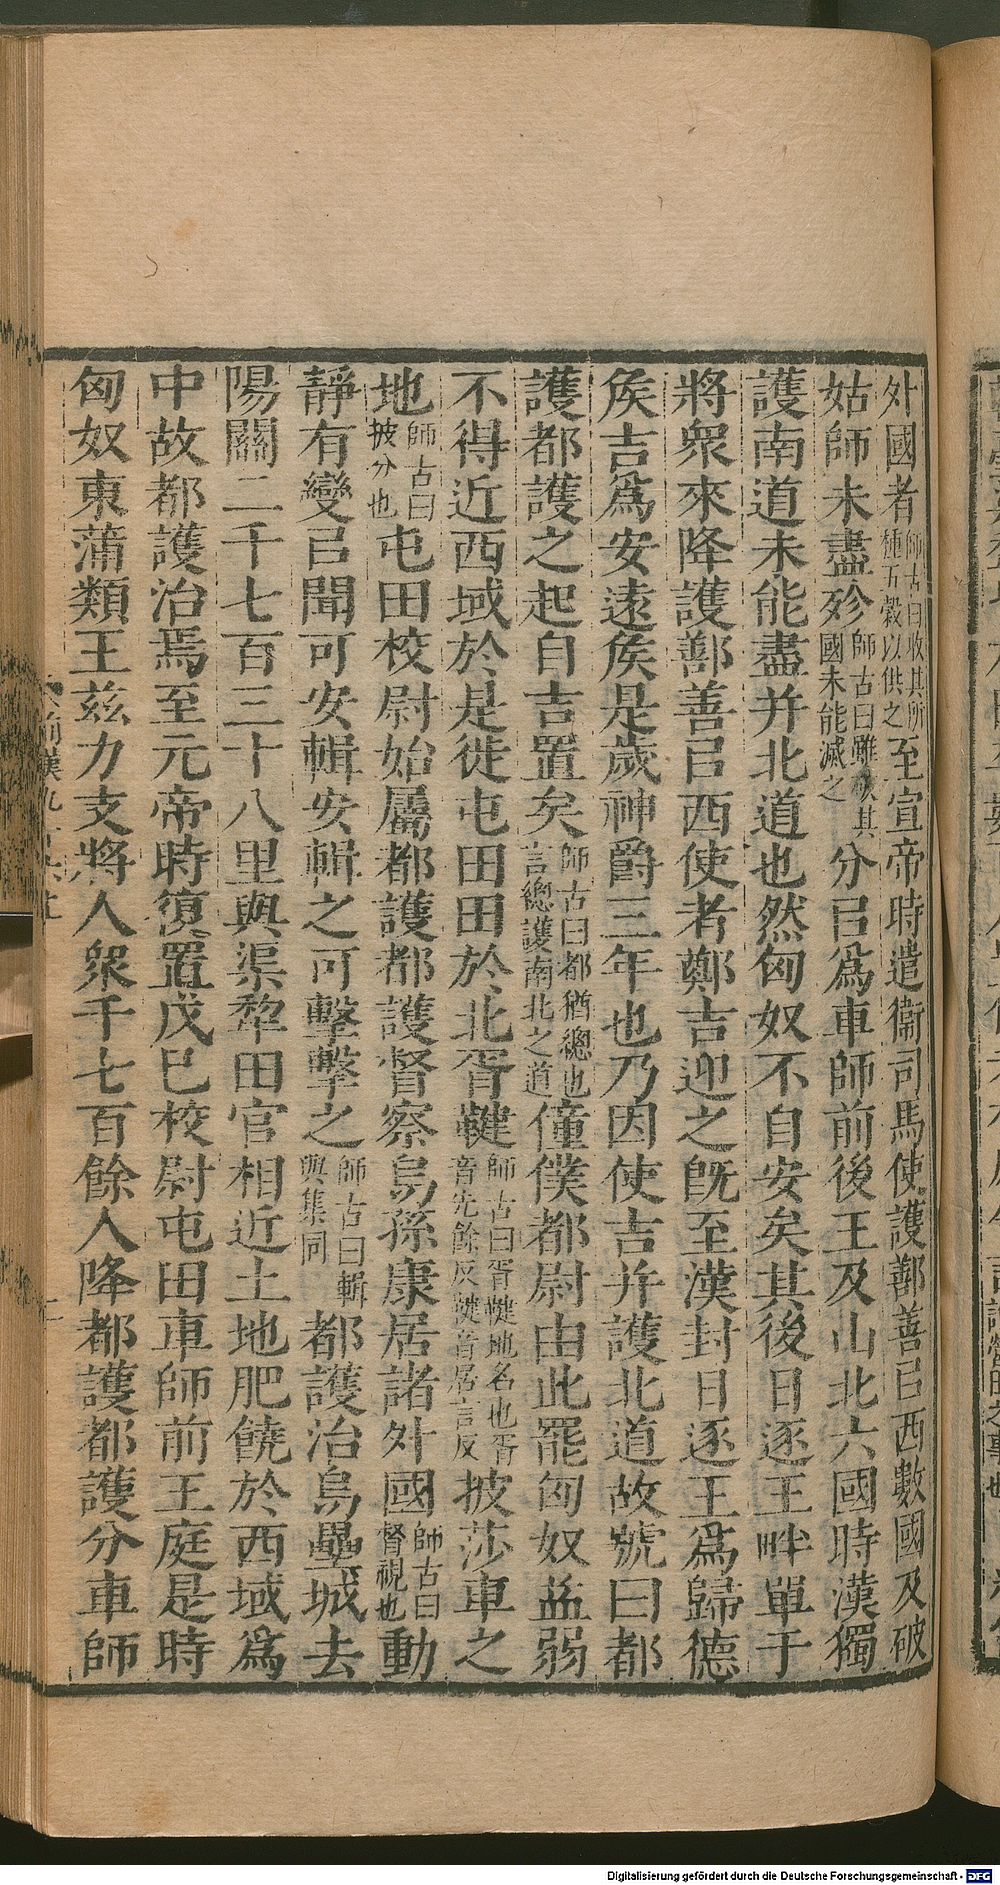 外國者師古曰收其所種五穀以供之至宣帝時遣衞司馬使護鄯善㠯西數國及破
姑師未盡殄師古曰雖破其國未能滅之分㠯爲車師前後王及山北六國時漢獨
護南道未能盡并北道也然匈奴不自安矣其後日逐王畔單于
將衆來降護鄯善㠯西使者鄭吉迎之旣至漢封日逐王爲歸德
矦吉爲安遠矦是歲神爵三年也乃因使吉并護北道故號曰都
護都護之起自吉置矣師古曰都猶總也言總護南北之道僮僕都尉由此罷匈奴益弱
不得近西域於是徙屯田田於北胥鞬師古曰胥鞬地名也胥音先餘反鞬音居言反披莎車之
地師古曰披分也屯田校尉始屬都護都護督察烏孫康居諸外國師古曰督視也動
靜有變㠯聞可安輯安輯之可擊擊之師古曰輯與集同都護治烏壘城去
陽關二千七百三十八里與渠犂田官相近土地肥饒於西域爲
中故都護治焉至元帝時復置戊巳校尉屯田車師前王庭是時
匈奴東蒲類王兹力支將人衆千七百餘人降都護都護分車師
Digitalisierung gefördert durch die Deutsche Forschungsgemeinschaft - DFG